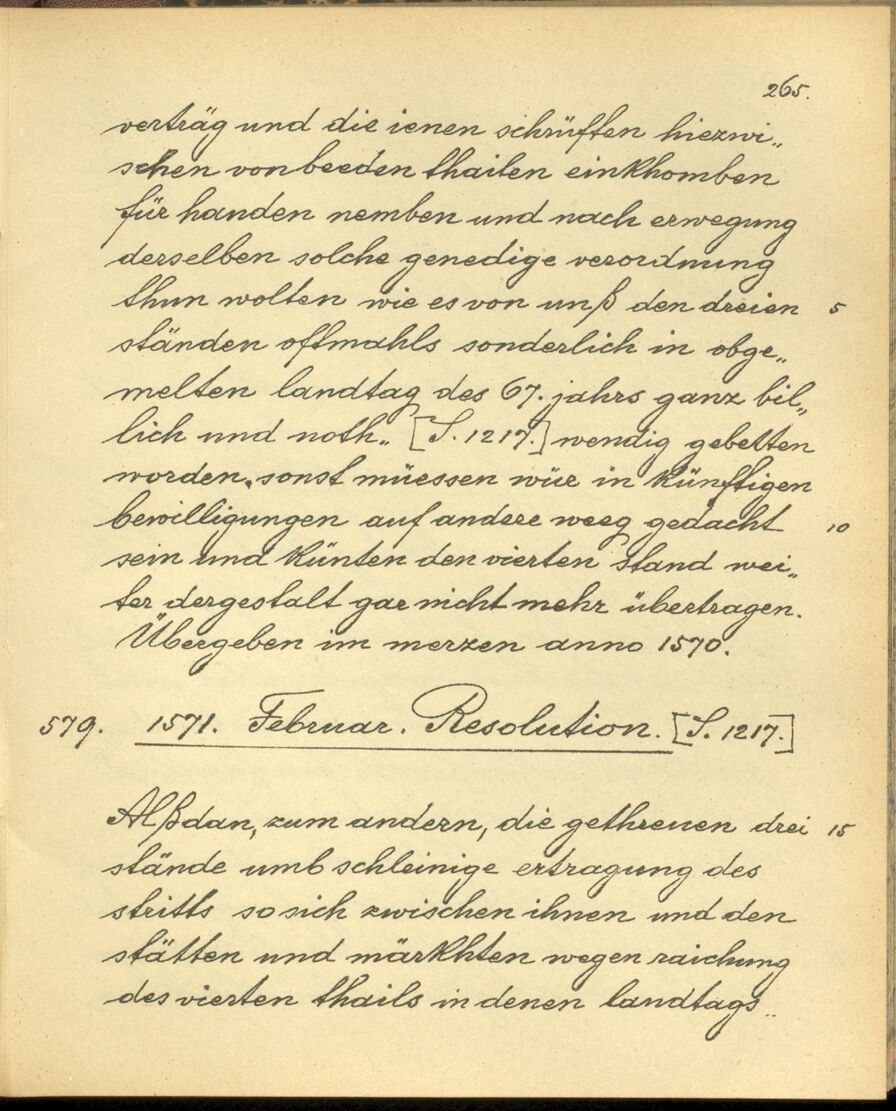 265.
verträg und die ienen schrüften hiezwi„
schen von beeden thailen einkhomben
für handen nemben und nach erwegung
derselben solche genedige verordnung
thun wolten wie es von unß den dreien 5
ständen oftmahls sonderlich in obge„
melten landtag des 67. jahrs ganz bil„
lich und noth„ [S. 1217.] wendig gebetten
worden, sonst müessen wür in künftigen
bewilligungen auf andere weeg gedacht 10
sein und künten den vierten stand wei„
ter dergestalt gar nicht mehr übertragen.
Übergeben im merzen anno 1570.
579. 1571. Februar. Resolution. [S. 1217.]
Alß dan, zum andern, die gethreuen drei 15
stände umb schleinige ertragung des
stritts so sich zwischen ihnen und den
stätten und märkhten wegen raichung
des vierten thails in denen landtags„